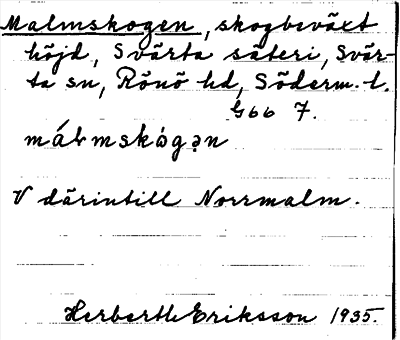 Malmskogen, skogbeväxt
höjd, Svärta säteri, Svär-
ta sn, Rönö hd, Söderm. l.
G66 7.
V därintill Norrmalm.
Eriksson 1935.